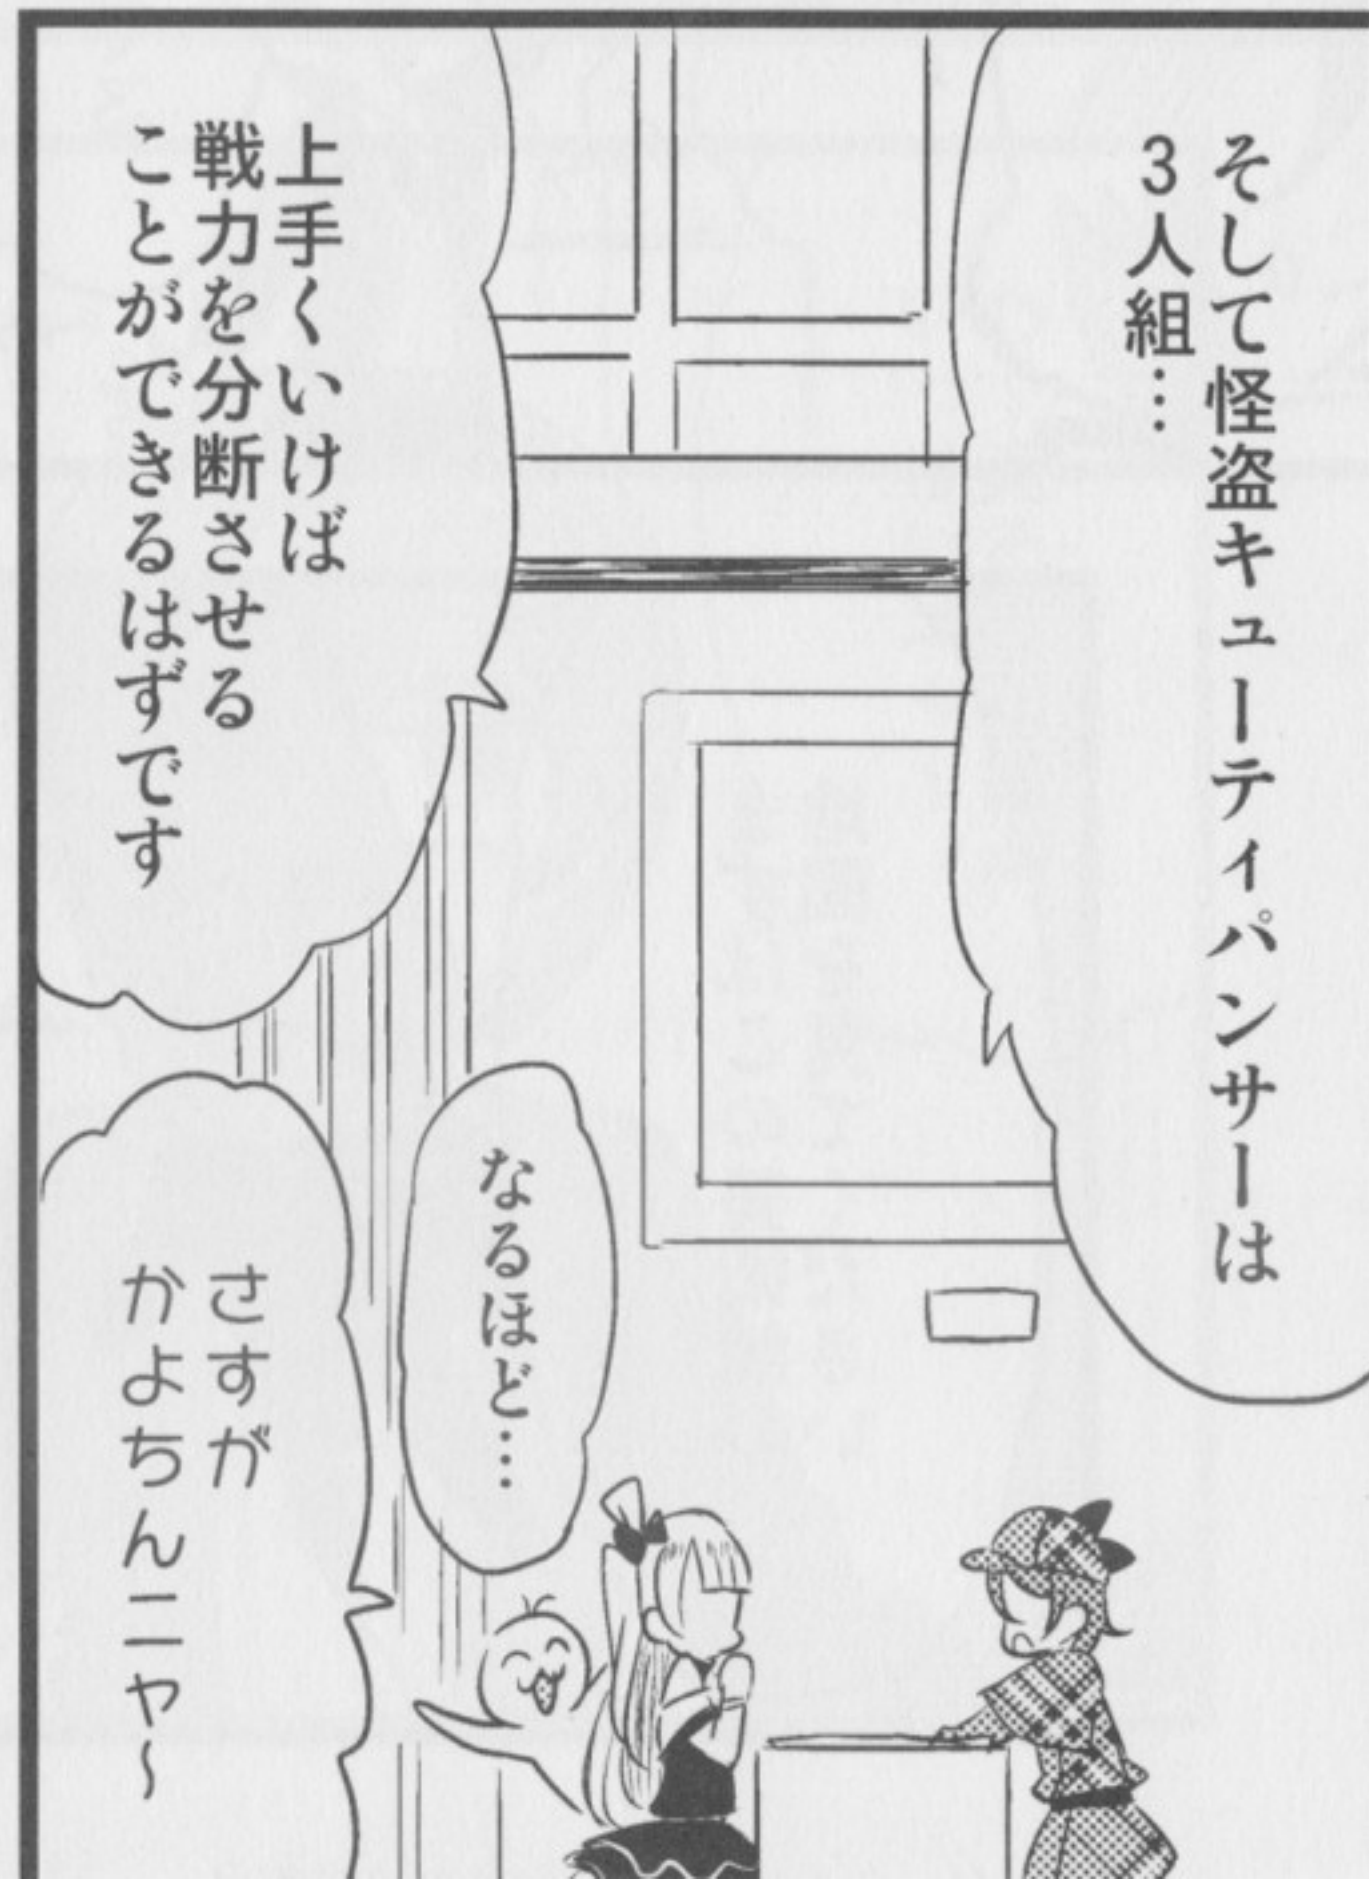 そして怪盗キューティパンサーは
3人組…
上手くいけば
戦力を分断させる
ことができるはずです
なるほど…
さすが
かよちんニャ～